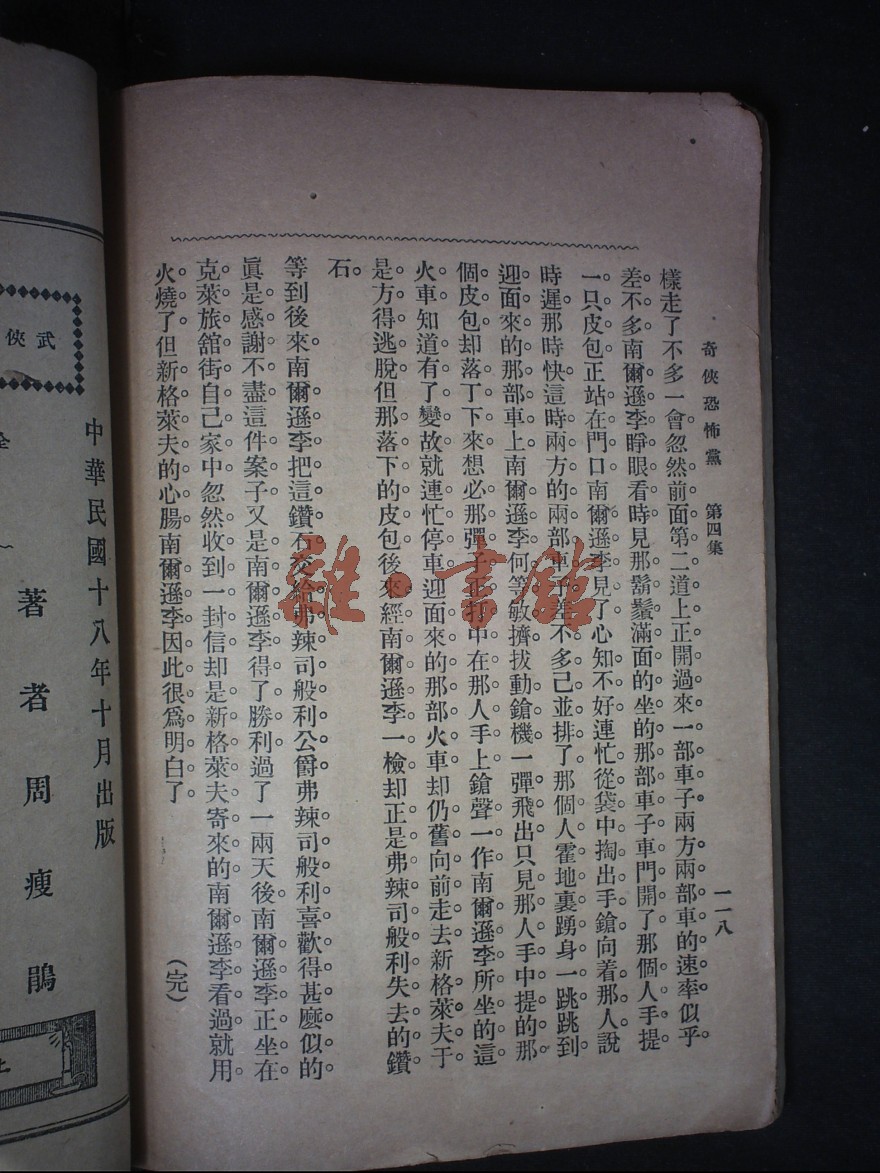 奇俠恐怖黨　第四集
一一八
樣走了不多一會。忽然前面第二道上正開過來一部車子。兩方兩部車的速率似乎
差不多。南爾遜李睜眼看時。見那鬍鬚滿面的坐的那部車子車門開了。那個人手提
一只皮包正站在門口。南爾遜李見了心知不好。連忙從袋中掏出手鎗向着那人說
時遲那時快。這時兩方的兩部車子差不多己並排了。那個人霍地裏踴身一跳跳到
迎面來的那部車上。南爾遜李何等敏擠拔動鎗機一彈飛出。只見那人手中提的那
個皮包却落丁下來。想必那彈子正打中在那人手上。鎗聲一作。南爾遜李所坐的這
火車知道有了變故。就連忙停車。迎面來的那部火車却仍舊向前走去。新格萊夫于
是方得逃脫。但那落下的皮包後來經南爾遜李一檢。却正是弗辣司般利失去的鑽
石。
等到後來南爾遜李把這鑽石交給弗辣司般利公爵。弗辣司般利喜歡得甚麼似的。
眞是感謝不盡。這件案子又是南爾遜李得了勝利。過了一兩天後。南爾遜李正坐在
克萊旅舘街自己家中。忽然收到一封信。却是新格萊夫寄來的。南爾遜李看過就用
火燒了。但新格萊夫的心腸南爾遜李因此很爲明白了。
（完）
中華民國十八年十月出版
著者周瘦鵑
武俠
雜·書館